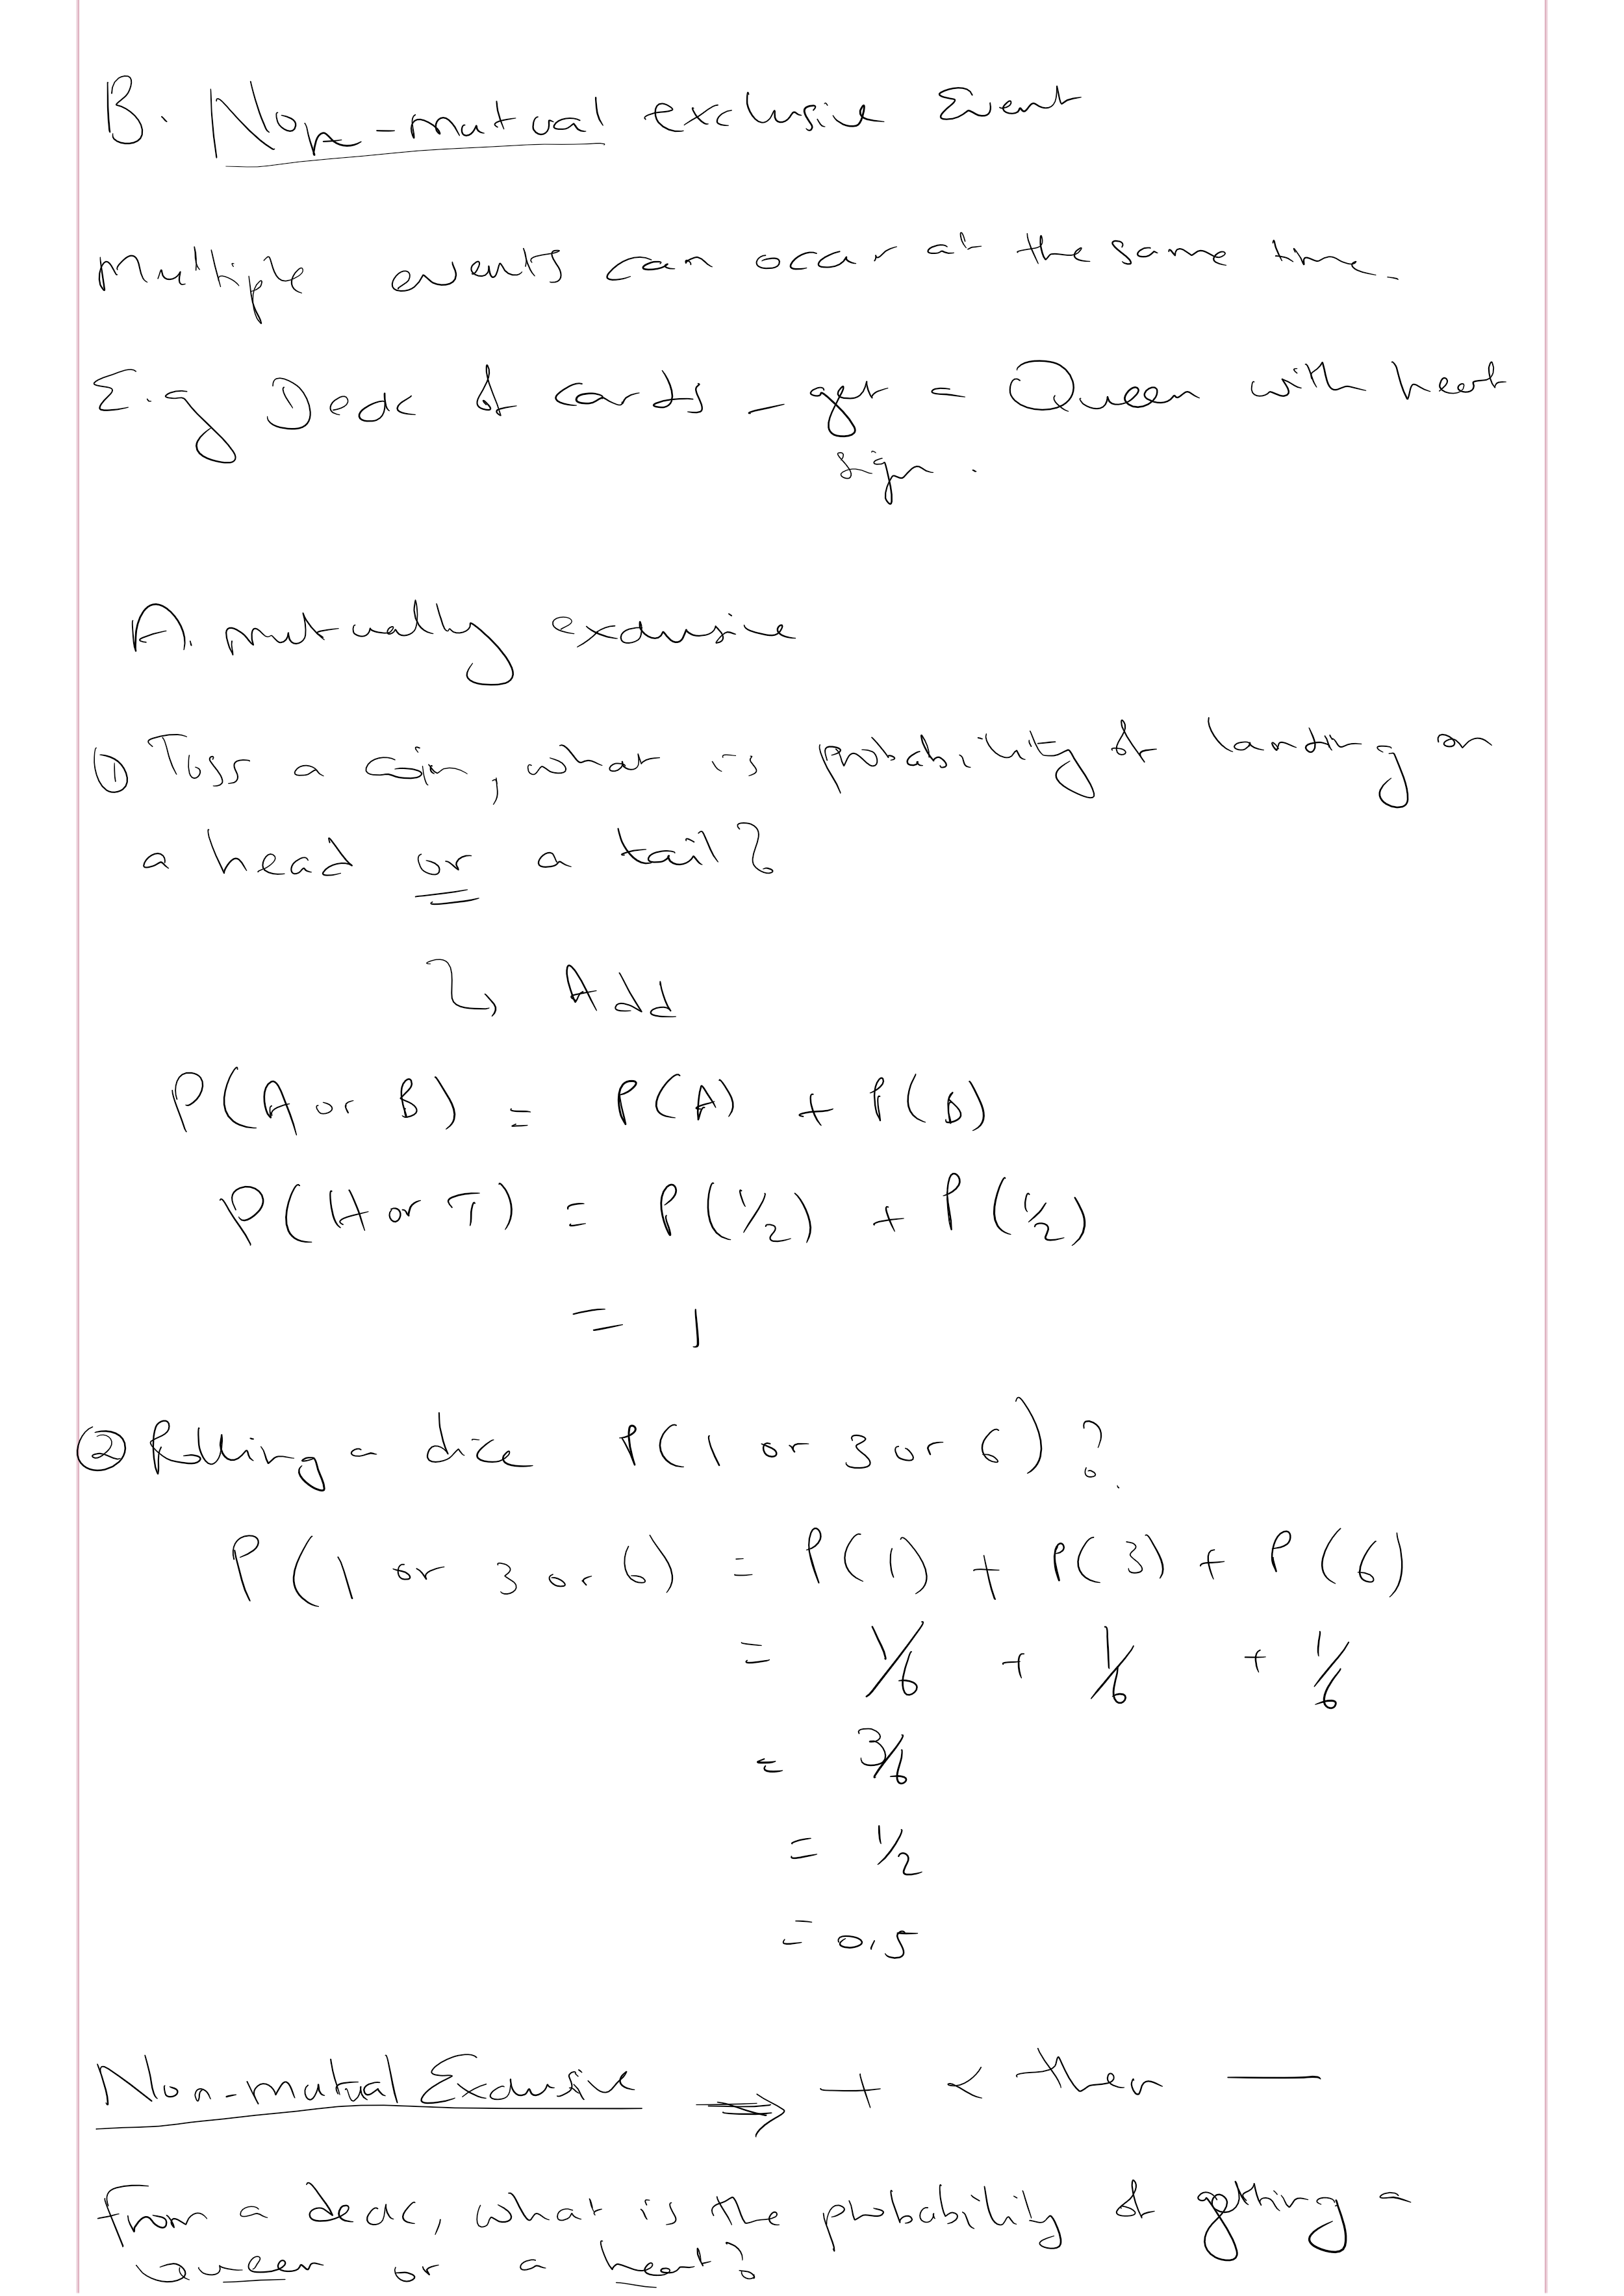 B. Non-mutual exclusive Event
Multiple events can occur at the same time.
E.g Deck of cards - get a Queen with heart
sign.
A. mutually exclusive
① Toss a coin, what is probability of landing on
a head or a tail?
↳ Add
P(A or B) = P(A) + P(B)
P(H or T) = P(1/2) + P(1/2)
= 1
② Rolling a dice P(1 or 3 or 6)?
P(1 or 3 or 6) = P(1) + P(3) + P(6)
= 1/6 + 1/6 + 1/6
= 3/6
= 1/2
= 0.5
Non-mutual Exclusive ⇒ + < then —
from a deck, what is the probability of getting a
Queen or a heart?